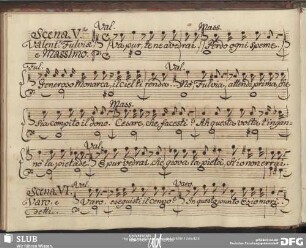 Scena V. Val. Mass.
Valent. Fulvia
e Massimo. Va pur, te ne avedrai. Perdo ogni speme.
Ful. Val.
Generoso Monarca, il Ciel ti renda Nò, Fulvia, attendi prima, che
Mass.
sia compito il dono. Cesare, che facesti? Ah questa volta t'ingan-
Val.
nò la pietade. E pur vedrai che giova la pietà,
Scena VI. Val. Varo.
Varo, e
detti. Varo, eseguisti il cenno? In questo punto Ezio morì.
SLUB
DFG